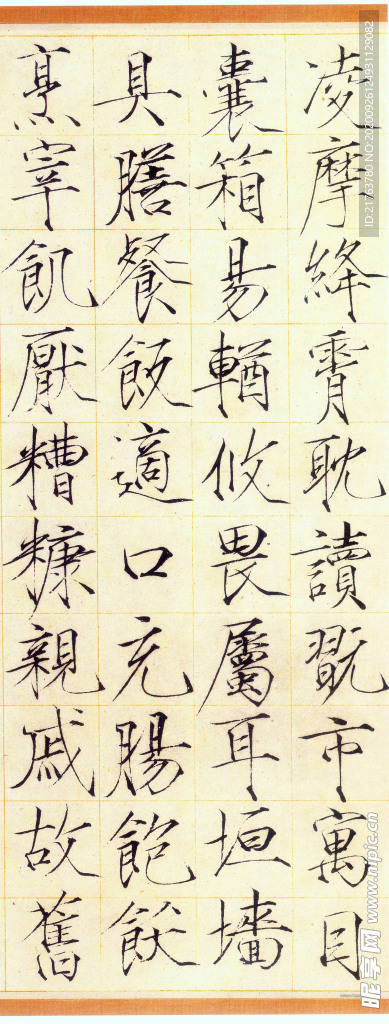 凌摩絳霄耽讀翫市寓目
囊箱易輶攸畏屬耳垣墻
具膳餐飯適口充腸飽飫
烹宰飢厭糟糠親戚故舊
ID:21763780 NO:20200926124931129082
昵享网 www.nipic.cn